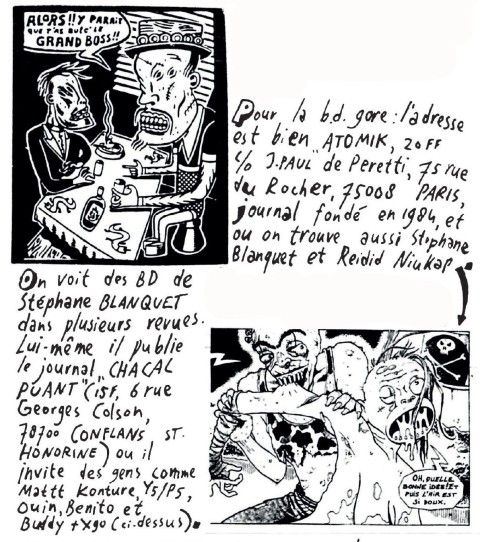 ALORS!! Y PARAÎT
QUE T'AS BUTÉ LE
GRAND BOSS!!
Pour la b.d. gore : l'adresse
est bien „ATOMIK, 20FF
c/o J.PAUL de Peretti, 75 rue
du Rocher, 75008 PARIS,
journal fondé en 1984, et
ou on trouve aussi Stéphane
Blanquet et Reidid Niukap.
On voit des BD de
Stéphane BLANQUET
dans plusieurs revues.
Lui-même il publie
le journal „CHACAL
PUANT" (15F, 6 rue
Georges Colson,
78700 CONFLANS ST.
HONORINE) ou il
invite des gens comme
Mattt Konture, Y5/P5,
Ouin, Benito et
Buddy + Xgo (ci-dessus).
OH, QUELLE
BONNE IDÉE! ET
PUIS L'AIR EST
SI DOUX.